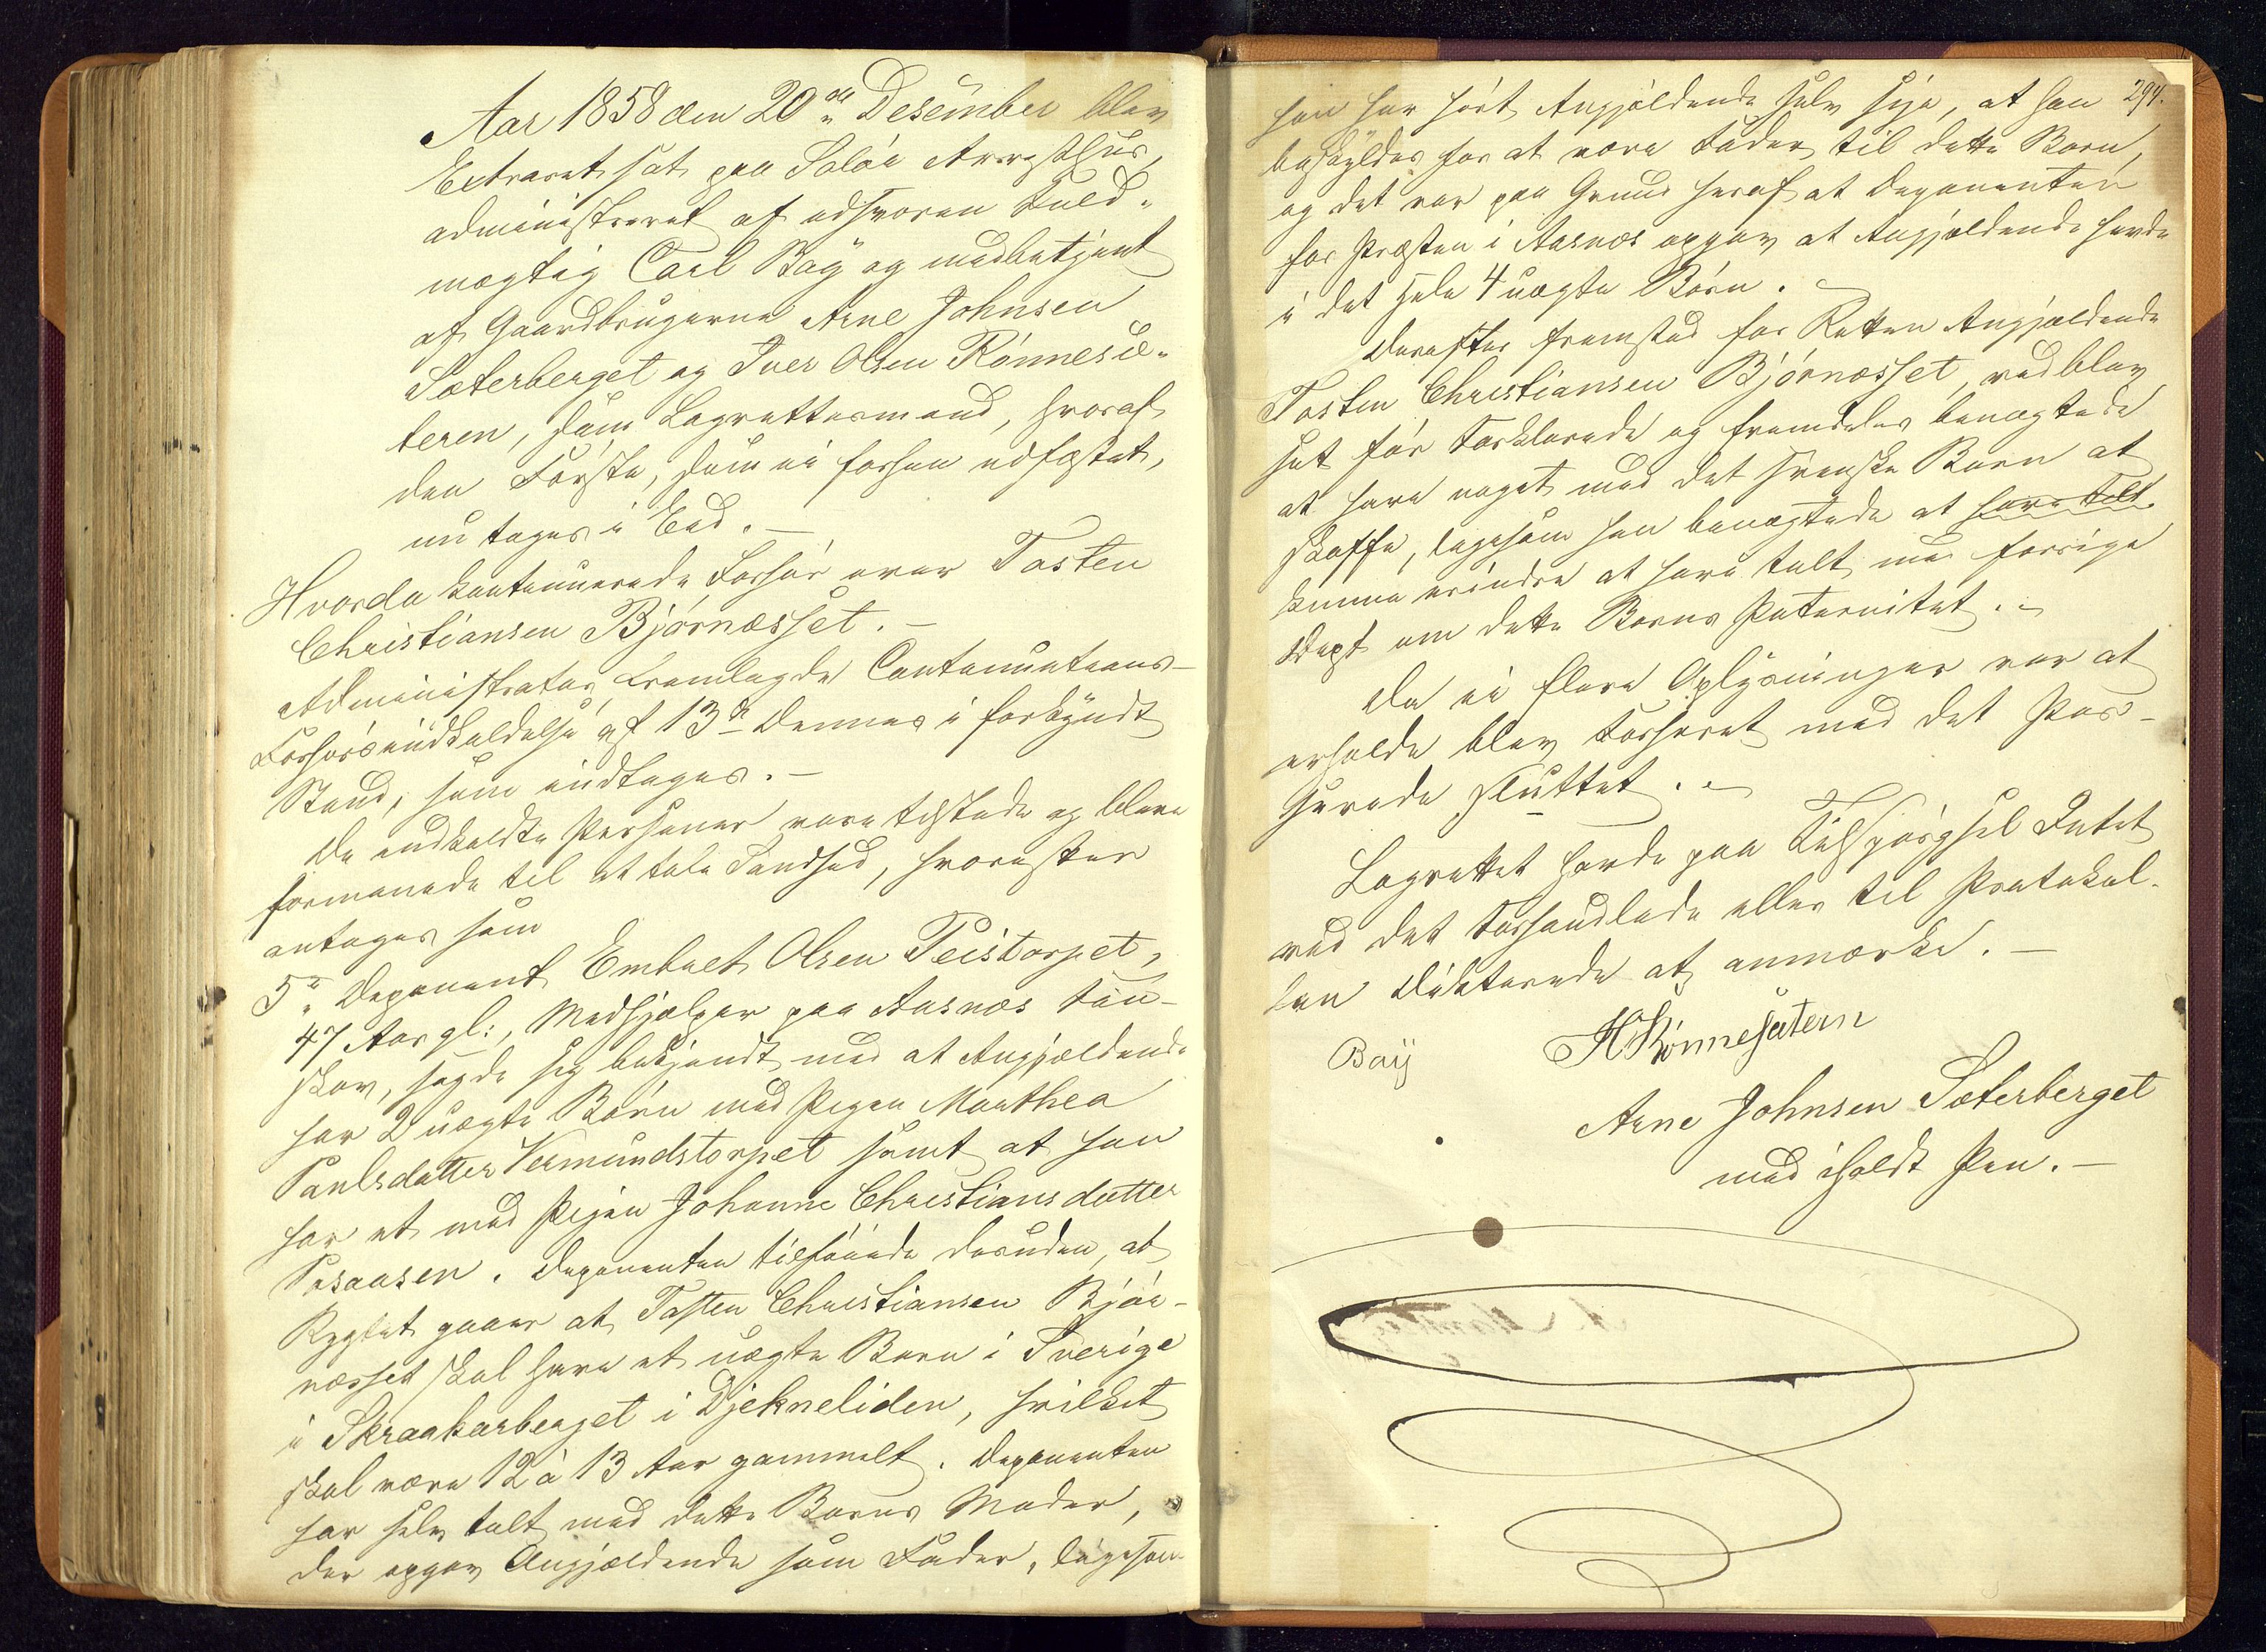 Aar 1858 den 20de Desember blev
Extraret sat paa Soløe Arresthus,
administreret af edsvoren Fuld-
mægtig Carl Baÿ og medbetjent
af Gaardbrugerne Arne Johnsen
Sæterberget og Iver Olsen Rønnesæ-
teren, som Lagrettesmænd, hvoraf
den Første, som ei forhen edfæstet,
nu toges i Eed. —
Hvorda kontinuerede Forhør over Tosten
Christiansen Bjørnæsset. —
Administrator fremlagde Contenuations-
Forhørsindkaldelse af 13de dennes i forkyndt
Stand, som indtages. —
De indkaldte Personer vare tilstede og bleve
formanede til at tale Sandhed, hvorefter
antoges som
5te Deponent Embret Olsen Peistorpet,
47 Aar gl:, Medhjælper paa Aasnæs Fin-
skov, sagde sig bekjendt med at Angjældende
har 2 uægte Børn med Pigen Marthea
Paulsdatter Vermundstorpet samt at han
har et med Pigen Johanne Christiansdatter
Posaasen. Deponenten tilføiede desuden, at
Rygtet gaaer at Tosten Christiansen Bjør-
næsset skal have et uægte Barn i Sverige
i Skraakarberget i Djekneliden, hvilket
skal være 12 à 13 Aar gammelt. Deponenten
har selv talt med dette Barns Moder,
der opgav Angjældende som Fader, ligesom
294.
han har hørt Angjældende selv sige, at han
beskyldes for at være Fader til dette Barn,
og det var paa Grund heraf at Deponenten
for Præsten i Aasnæs opgav at Angjældende havde
i det Hele 4 uægte Børn. —
Derefter fremstod for Retten Angjældende
Tosten Christiansen Bjørnæsset, vedblev
sit før Forklarede og fremdeles benægtede
at have noget med det svenske Barn at
skaffe, ligesom han benægtede at have talt
kunne erindre at have talt med forrige
Dept om dette Barns Paternitet. —
Da ei flere Oplysninger var at
erholde blev Forhøret med det Pas-
serede sluttet. —
Lagrettet havde paa Tilspørgsel Intet
ved det Forhandlede eller til Protokol-
len Dikterede at anmærke. —
Baÿ
Rønnesætern
Arne Johnsen Sæterberget
med iholdt Pen. —